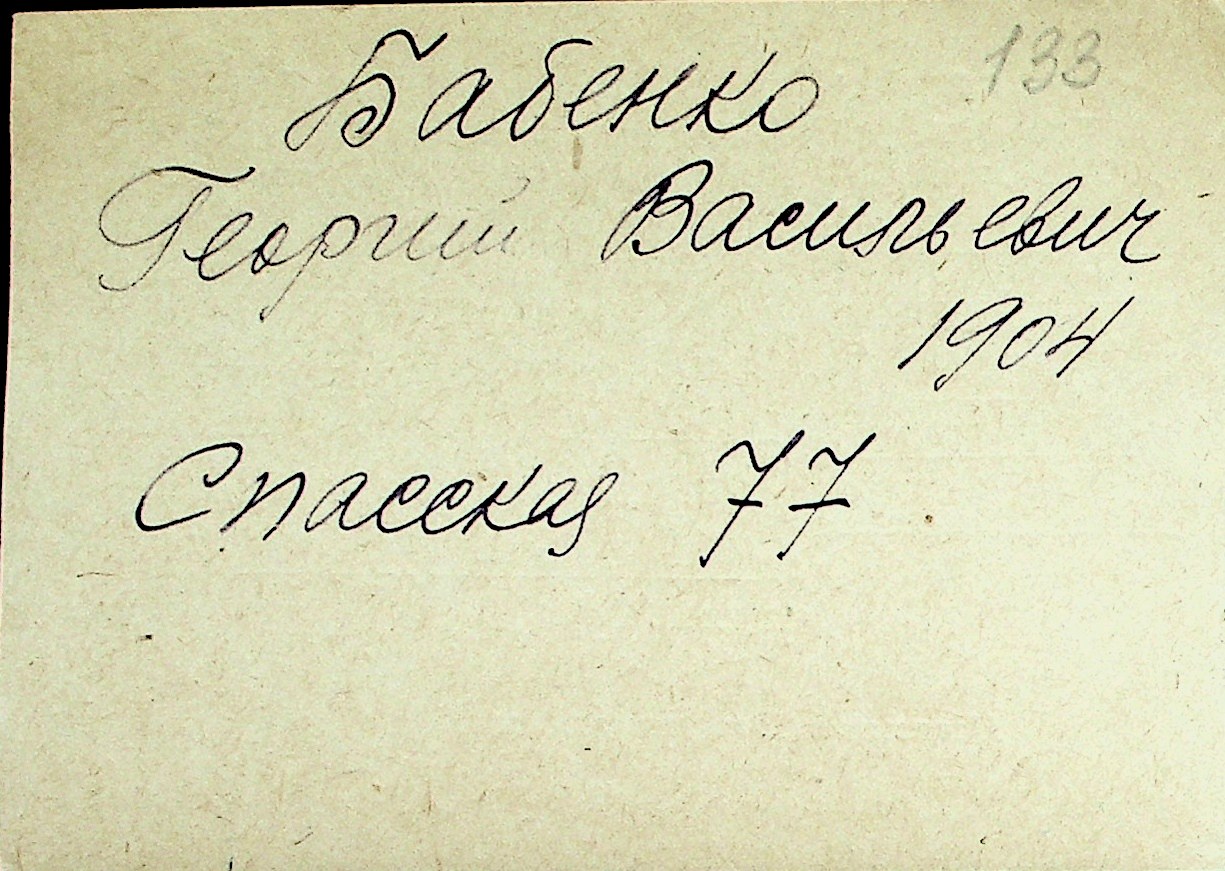 Бабенко 133
Георгий Васильевич
1904
Спасская 77